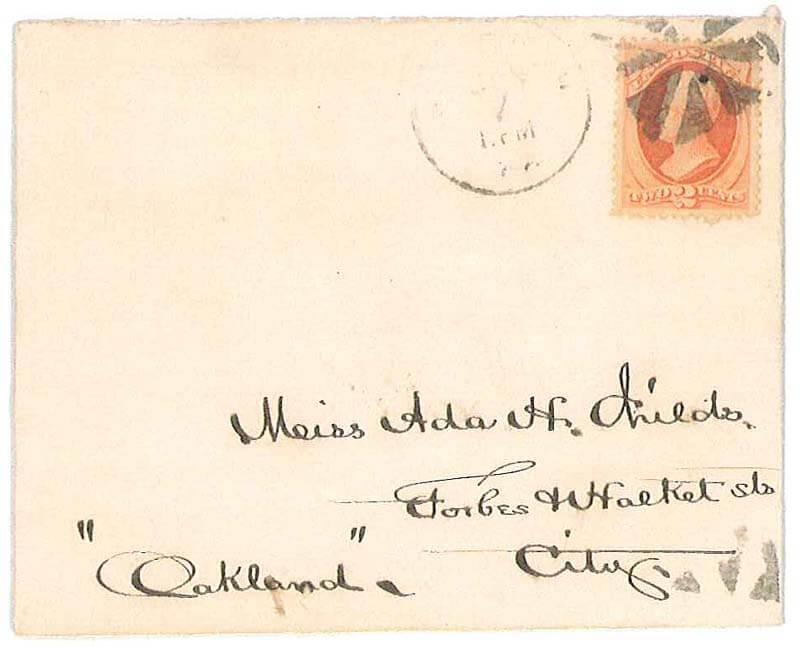 1
1 PM
TWO 2 CENTS
Miss Ada H. Childs.
Forbes & Halket sts
City
"Oakland".